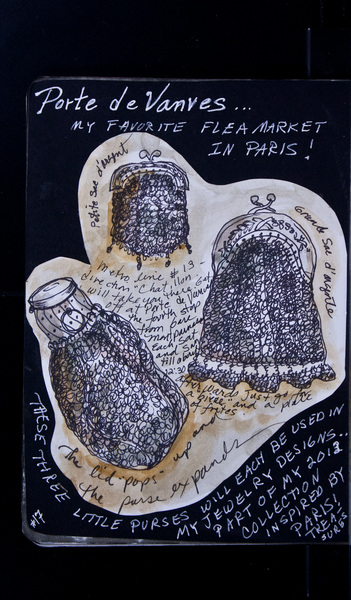 Porte de Vanves...
MY FAVORITE FLEA MARKET
IN PARIS!
Petite Sac d'argent
Grande Sac d'argente
Metro Line #13 -
direction "Chatillon"
will take you there. Get
off at Porte de Vanves
stop
from
and
12:30
afterwards just go
a and a plate
of frites
The lid "pops" up and
the purse expands
THESE THREE LITTLE PURSES WILL EACH BE USED IN
MY JEWELRY DESIGNS...
PART OF MY 2012
COLLECTION
INSPIRED BY
PARIS!
TREASURES